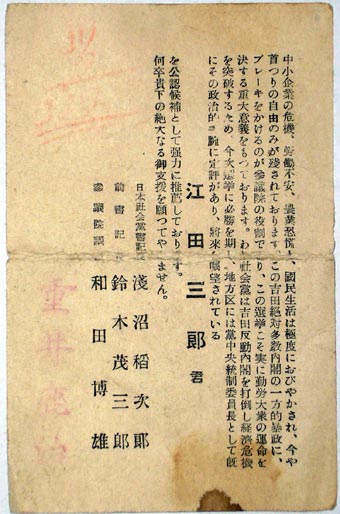 中小企業の危機、労働不安、農業恐慌と、國民生活は極度におびやかされ、今や
首つりの自由のみが残されております。この吉田絶対多数内閣の一方的暴政に、
ブレーキをかけるのが参議院の役割であり、この選挙こそ実に勤労大衆の運命を
決する重大意義をもつております。わが社会党は吉田反動内閣を打倒し経済危機
を突破するため、今次選挙に必勝を期し、地方区には党中央統制委員長として既
にその政治的手腕に定評があり、将来を嘱望されている
江田三郎君
を公認候補として強力に推薦しております。
何卒貴下の絶大なる御支援を願つてやみません。
日本社会党書記長 淺沼稻次郎
前書記長 鈴木茂三郎
参議院議 和田博雄